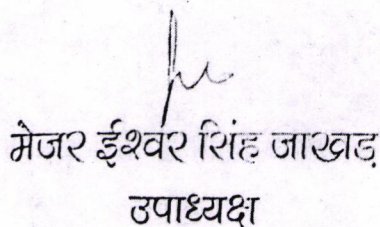 मेजर ईश्वर सिंह जाखड़
उपाध्यक्ष